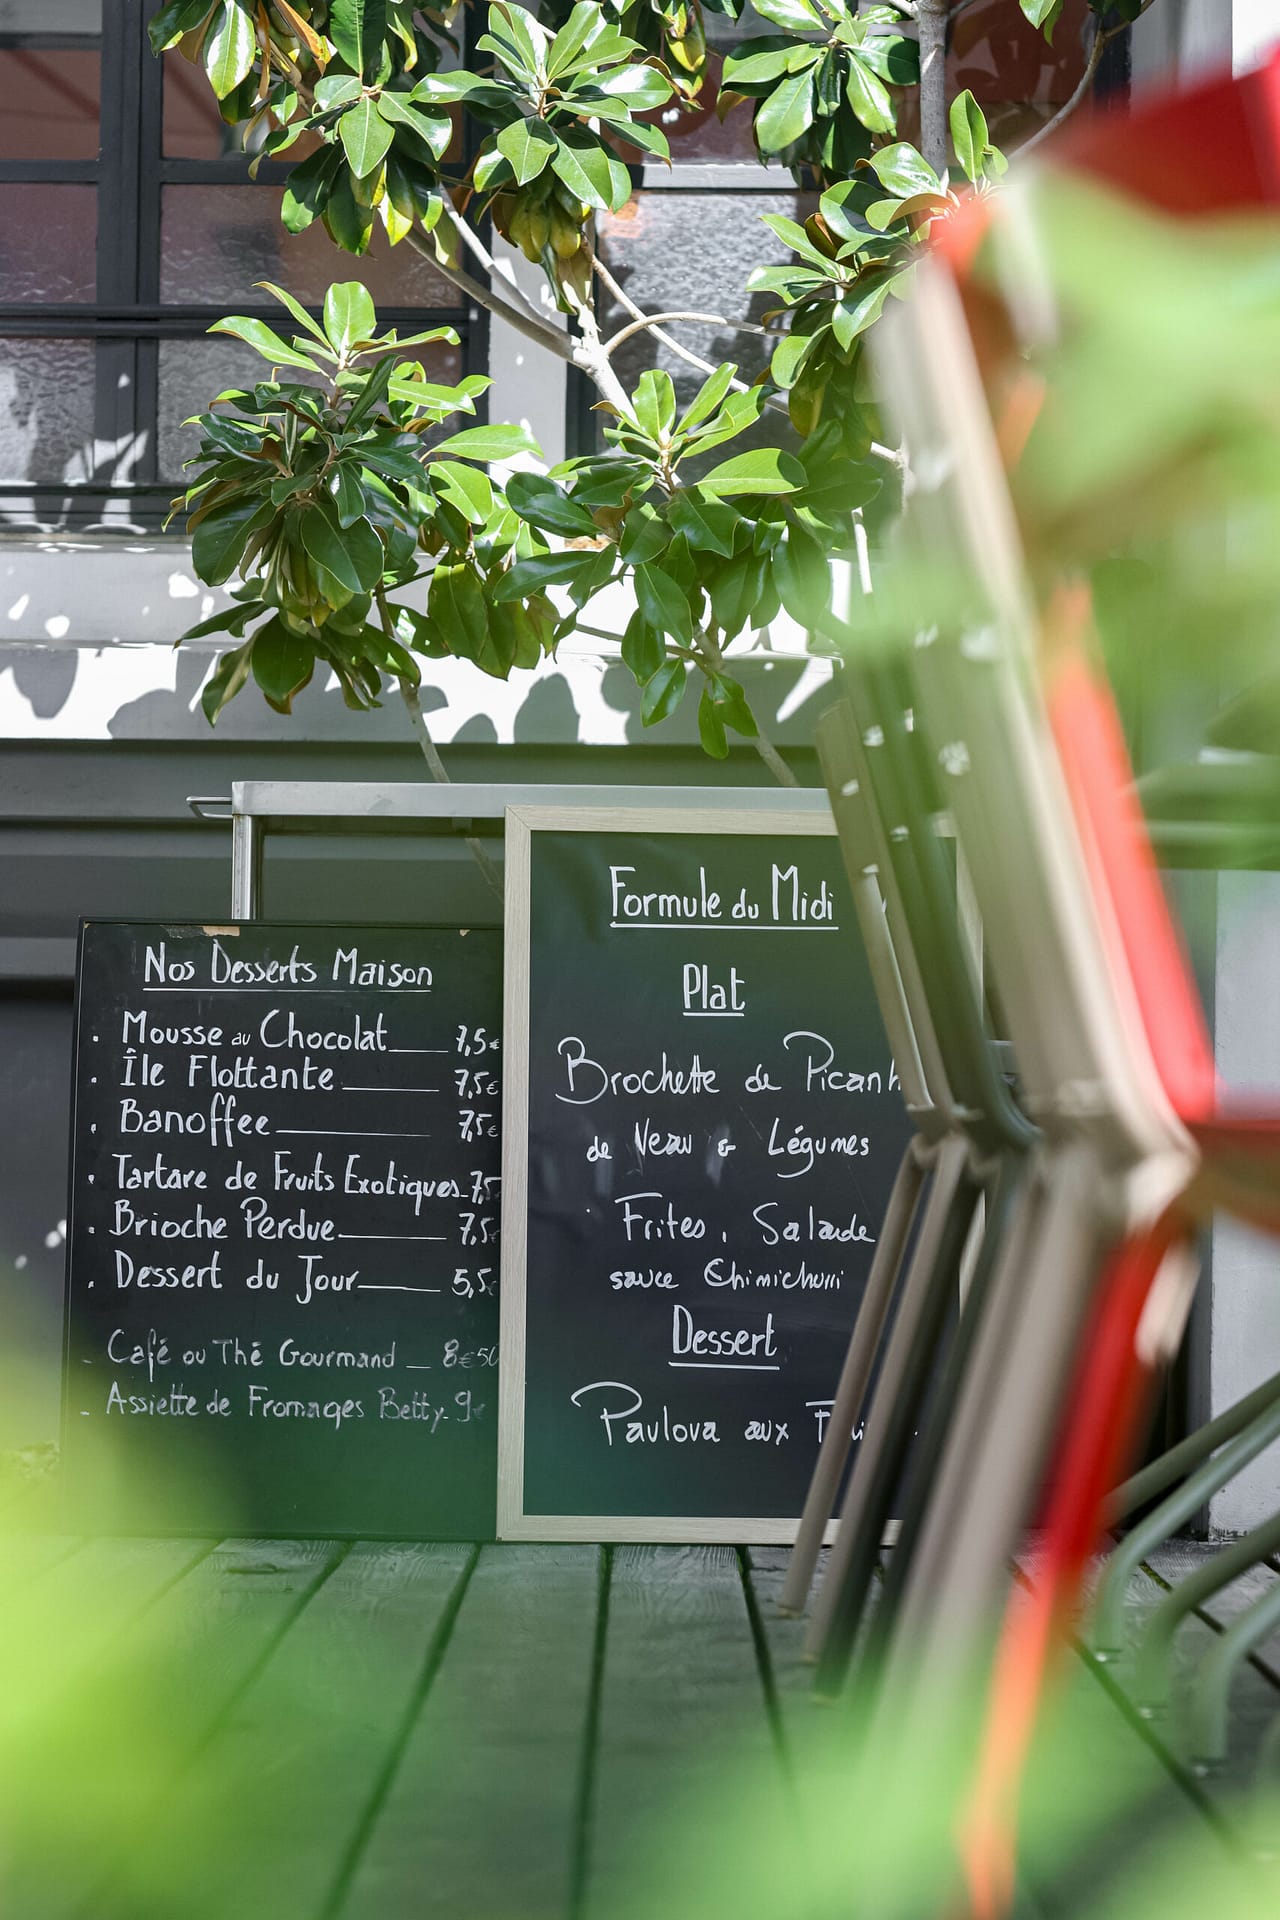 Nos Desserts Maison
. Mousse au Chocolat 7,5€
. Île Flottante 7,5€
. Banoffee 7,5€
. Tartare de Fruits Exotiques 7,5
. Brioche Perdue 7,5
. Dessert du Jour 5,5
- Café ou Thé Gourmand _ 8€50
- Assiette de Fromages Betty - 9€
Formule du Midi
Plat
Brochette de
de Veau & Légumes
Frites, Salade
sauce Chimichurri
Dessert
Pavlova aux